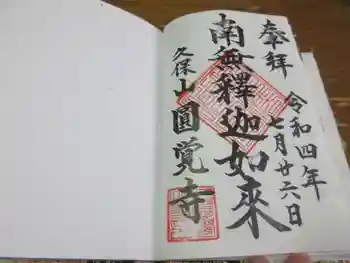 奉拝
令和四年
七月廿六日
南無釋迦如来
久保山圓覚寺